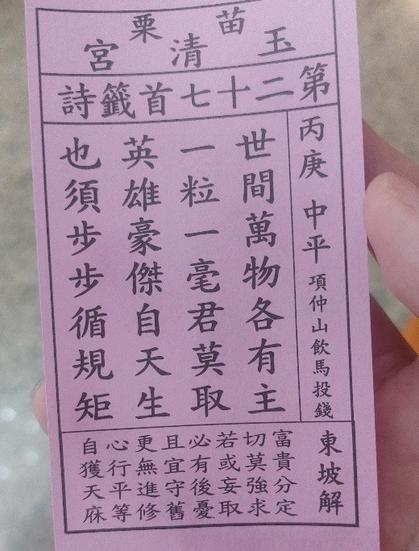 苗栗
玉清宮
第二十七首籤詩
丙庚 中平 項仲山飲馬投錢
世間萬物各有主
一粒一毫君莫取
英雄豪傑自天生
也須步步循規矩
東坡解
富貴分定
切莫強求
若或妄取
必有後憂
且宜守舊
更無進修
心行平等
自獲天麻